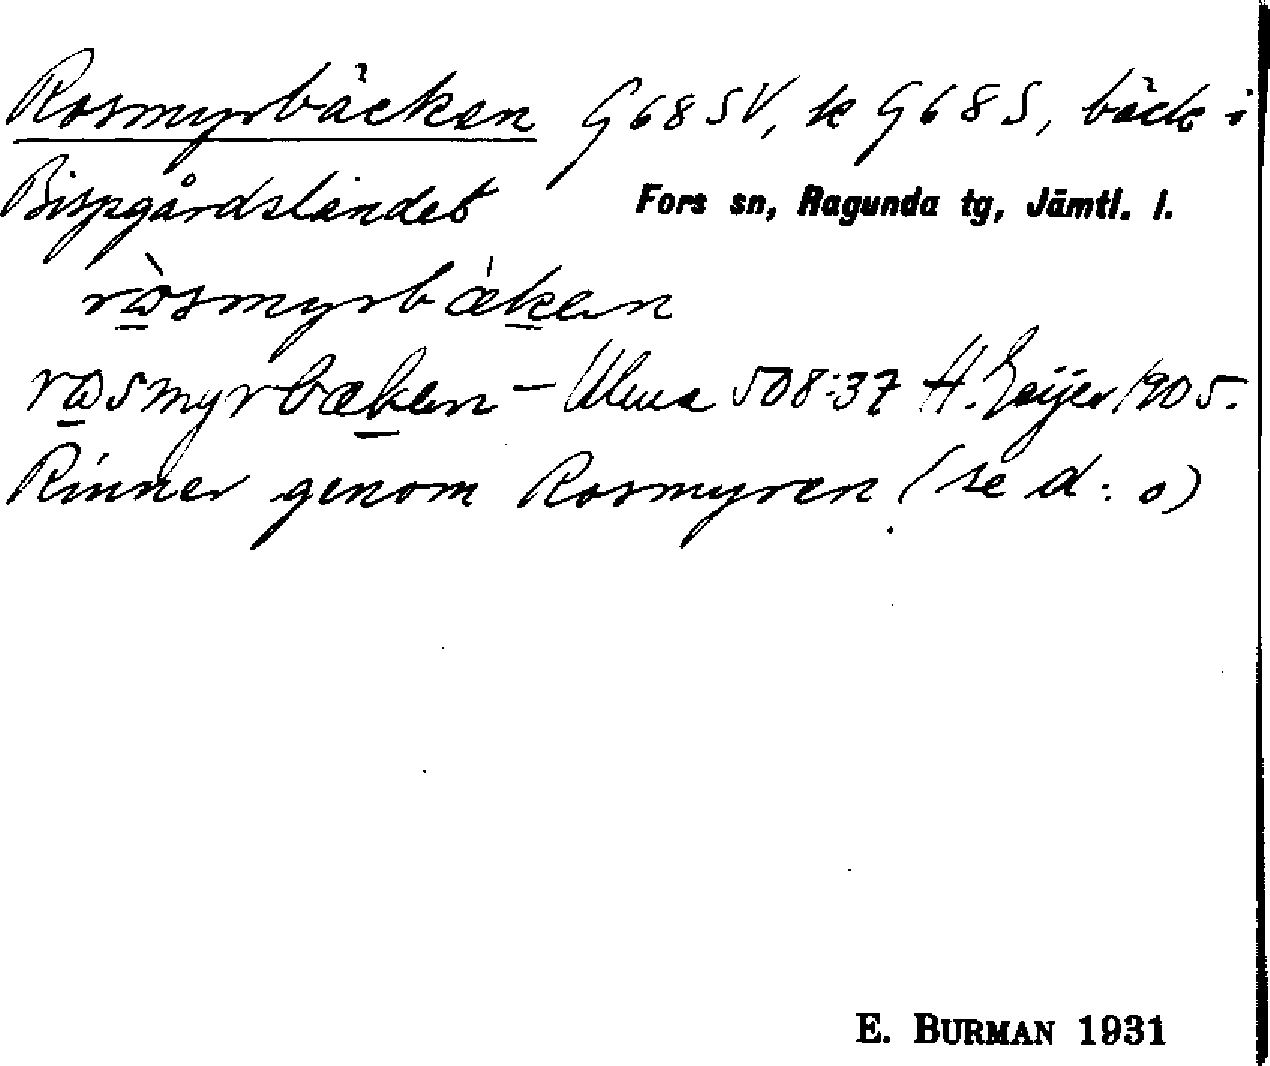 Rosmyrbäcken G68SV, k G68S, bäck i
Bispgårdslandet Fors sn, Ragunda tg, Jämtl. l.
ròsmyrbǽken
rosmyrbæken – 508:37 H. Geijer 1905.
Rinner genom Rosmyren (se d:o)
E. BURMAN 1931